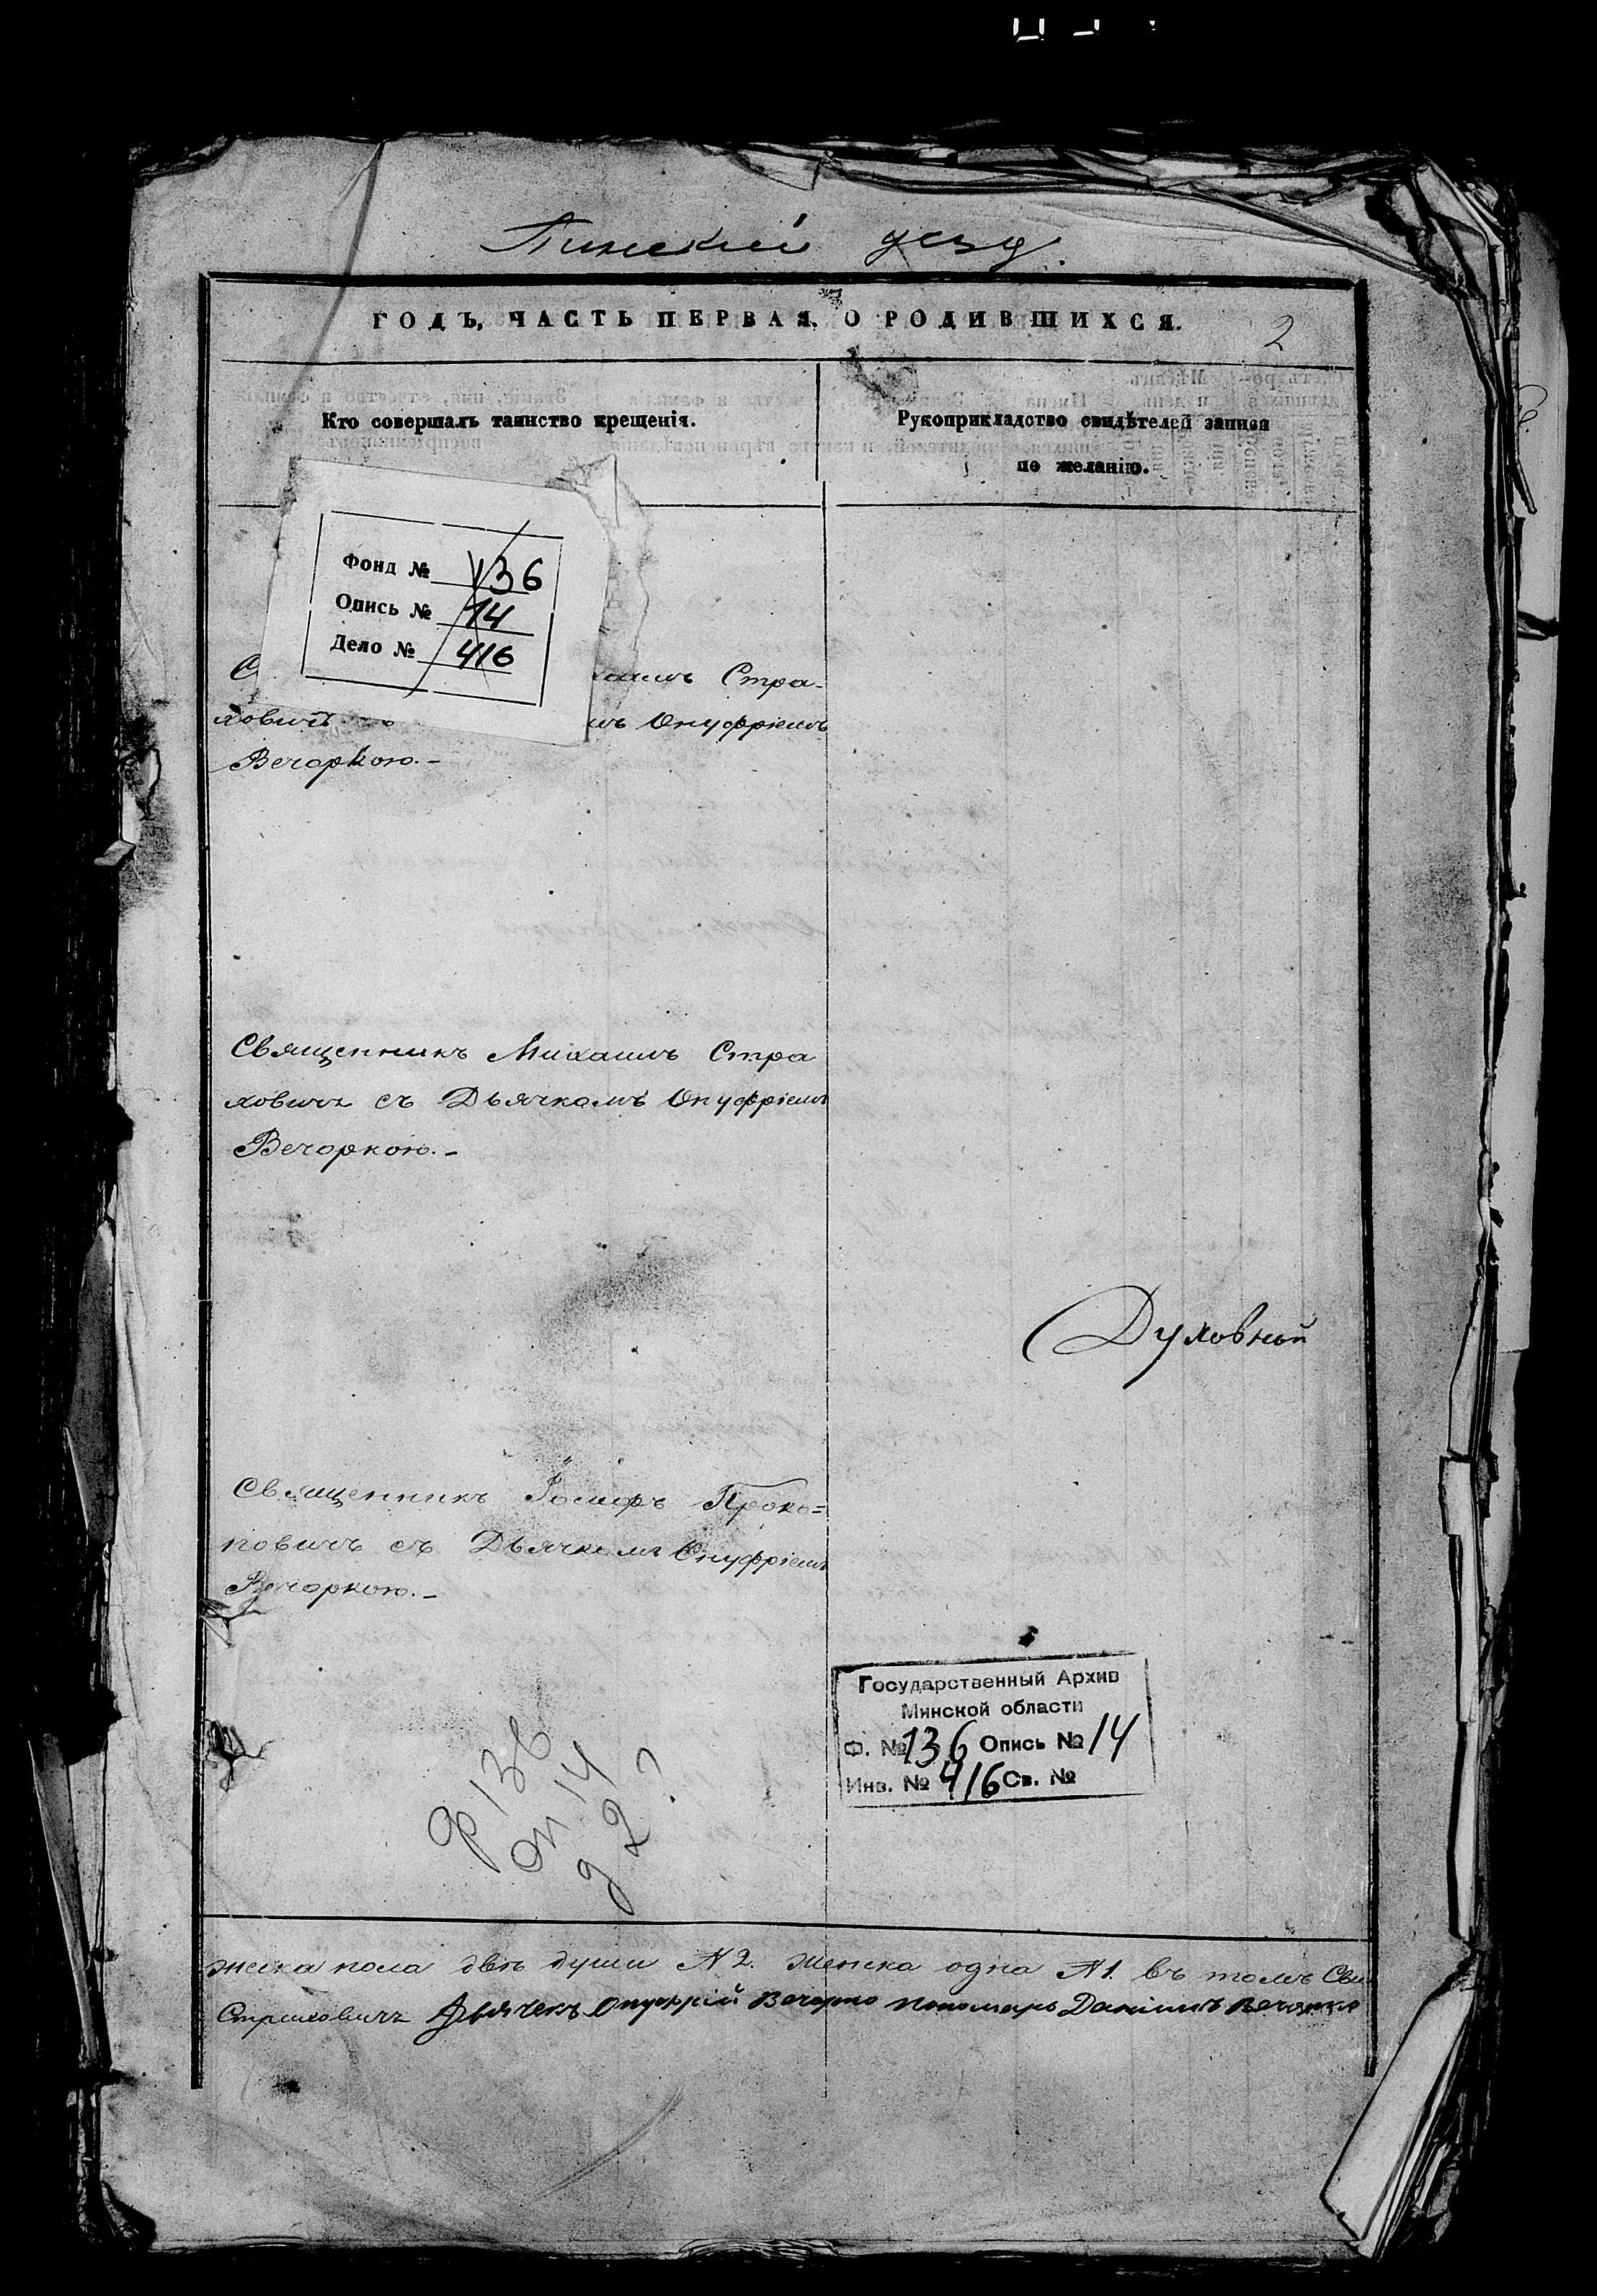 Пинскій уезд.
ГОДЪ, ЧАСТЬ ПЕРВАЯ, О РОДИВШИХСЯ.
2
Кто совершалъ таинство крещенія.
Рукоприкладство свидѣтелей записи
по желанію.
Фонд № 136
Опись № 14
Дело № 416
Стра-
ховичъ Онуфріемъ
Вечоркою.-
Священникъ Михаилъ Стра
ховичъ съ Дьячкомъ Онуфріемъ
Вечоркою.-
Духовной
Священникъ Іосифъ Проко=
повичъ съ Дьячкомъ Онуфріемъ
Вечоркою.-
Государственный Архив
Минской области
Ф. № 136 Опись № 14
Инв. № 416 Св. №
ф 136
оп 14
д 2?
жеска пола двѣ души № 2. женска одна № 1. въ томъ Свя
Страховичъ Дьячекъ Онуфрій Вечорко Пономарь Даніилъ Вечорко